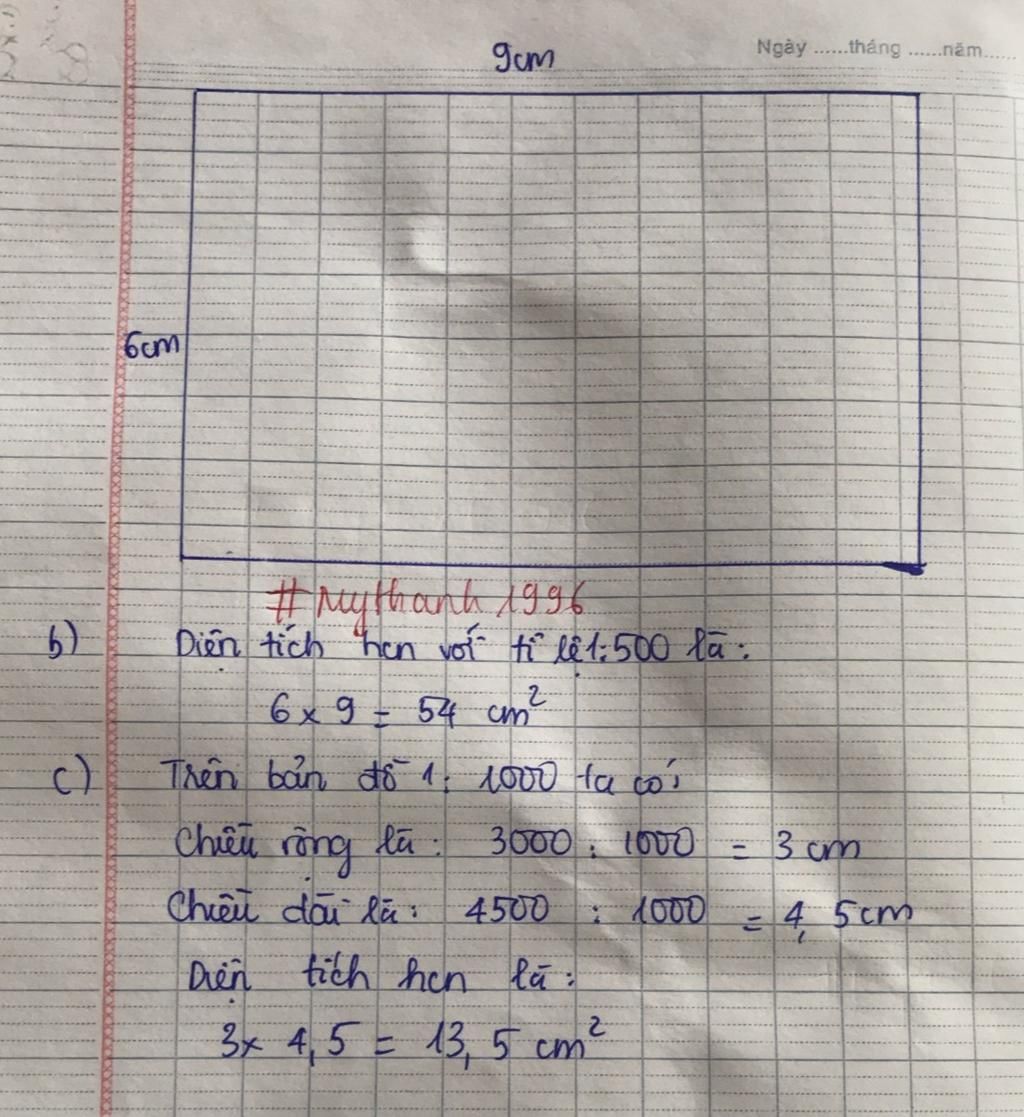 Ngày ......tháng ......năm......
9cm
6cm
#Mythanh1996
b) Diện tích hcn với tỉ lệ 1:500 là:
6 x 9 = 54 cm²
c) Trên bản đồ 1: 1000 ta có:
Chiều rộng là: 3000 : 1000 = 3 cm
Chiều dài là: 4500 : 1000 = 4,5cm
Diện tích hcn là:
3x 4,5 = 13,5 cm²